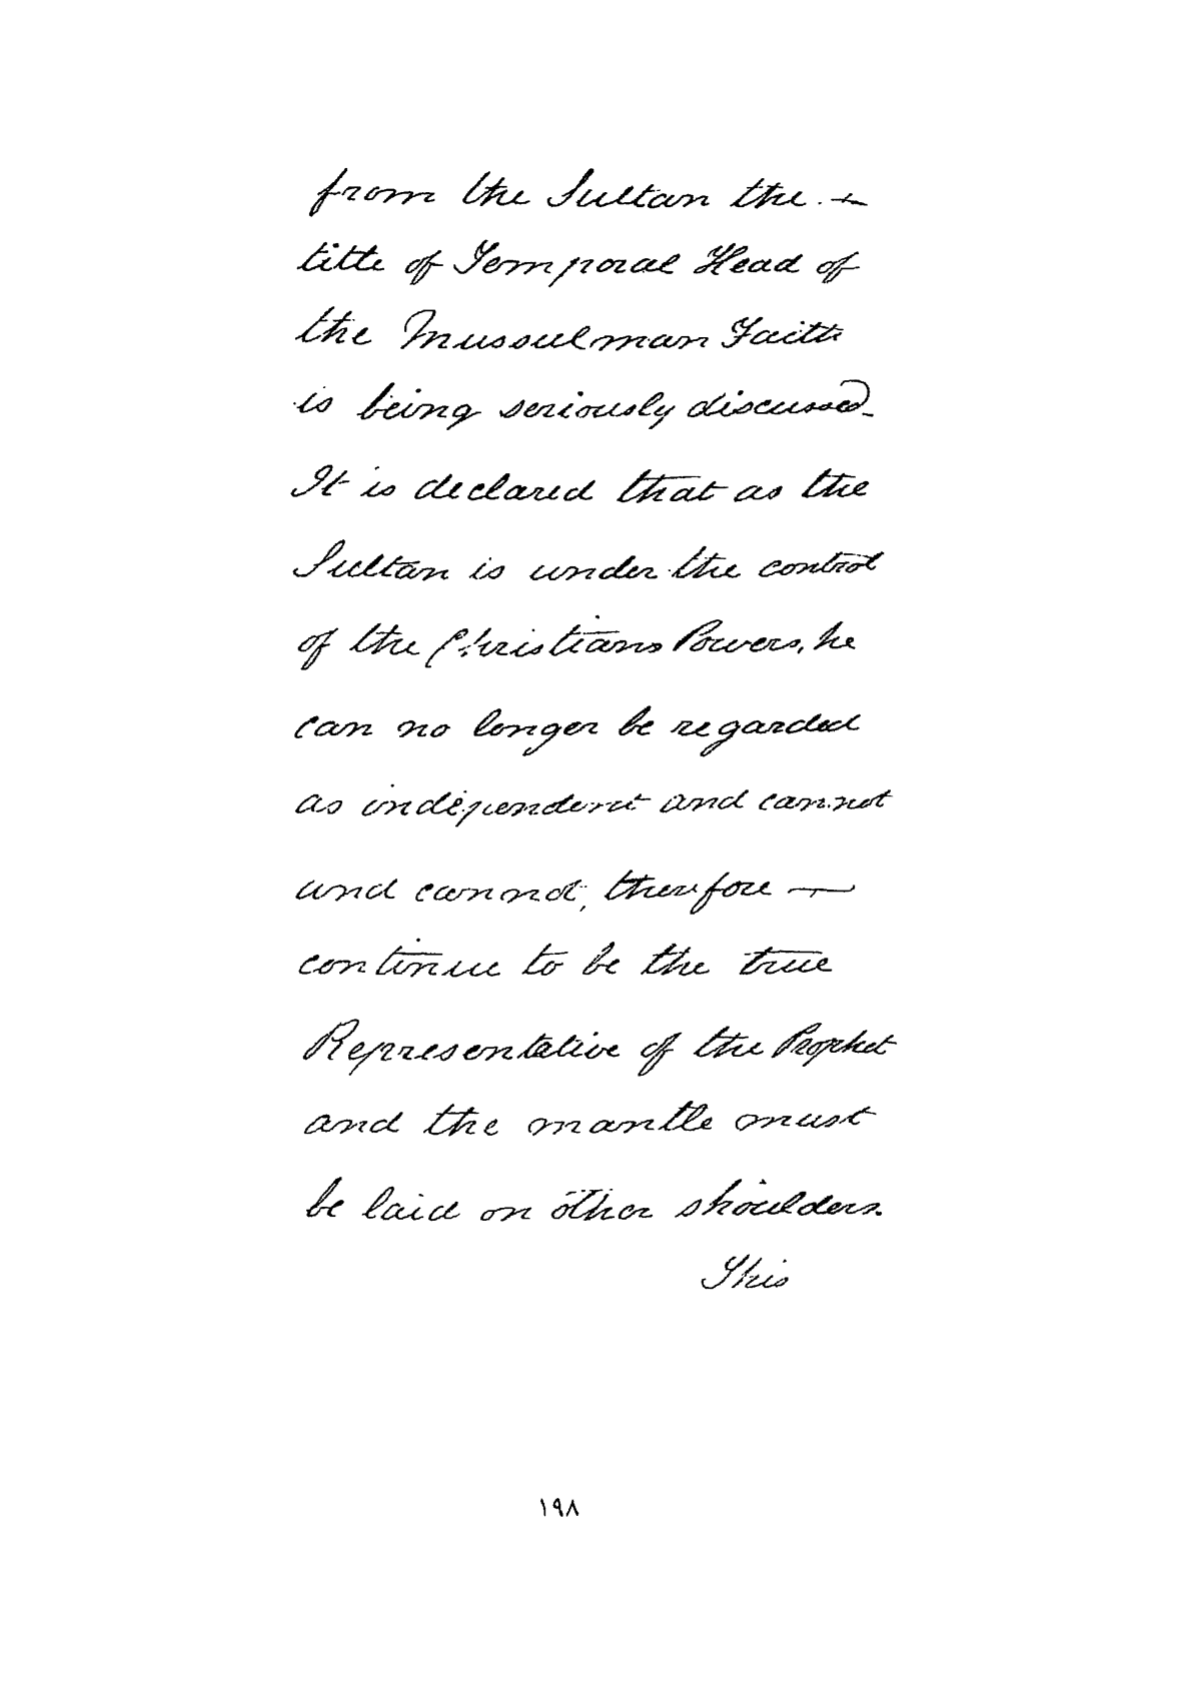 from the Sultan the. —
title of Temporal Head of
the Mussulman Faith
is being seriously discussed_
It is declared that as the
Sultan is under the control
of the Christians Powers, he
can no longer be regarded
as independent and cannot
and cannot, therefore —
continue to be the true
Representative of the Prophet
and the mantle must
be laid on other shoulders.
This
١٩٨